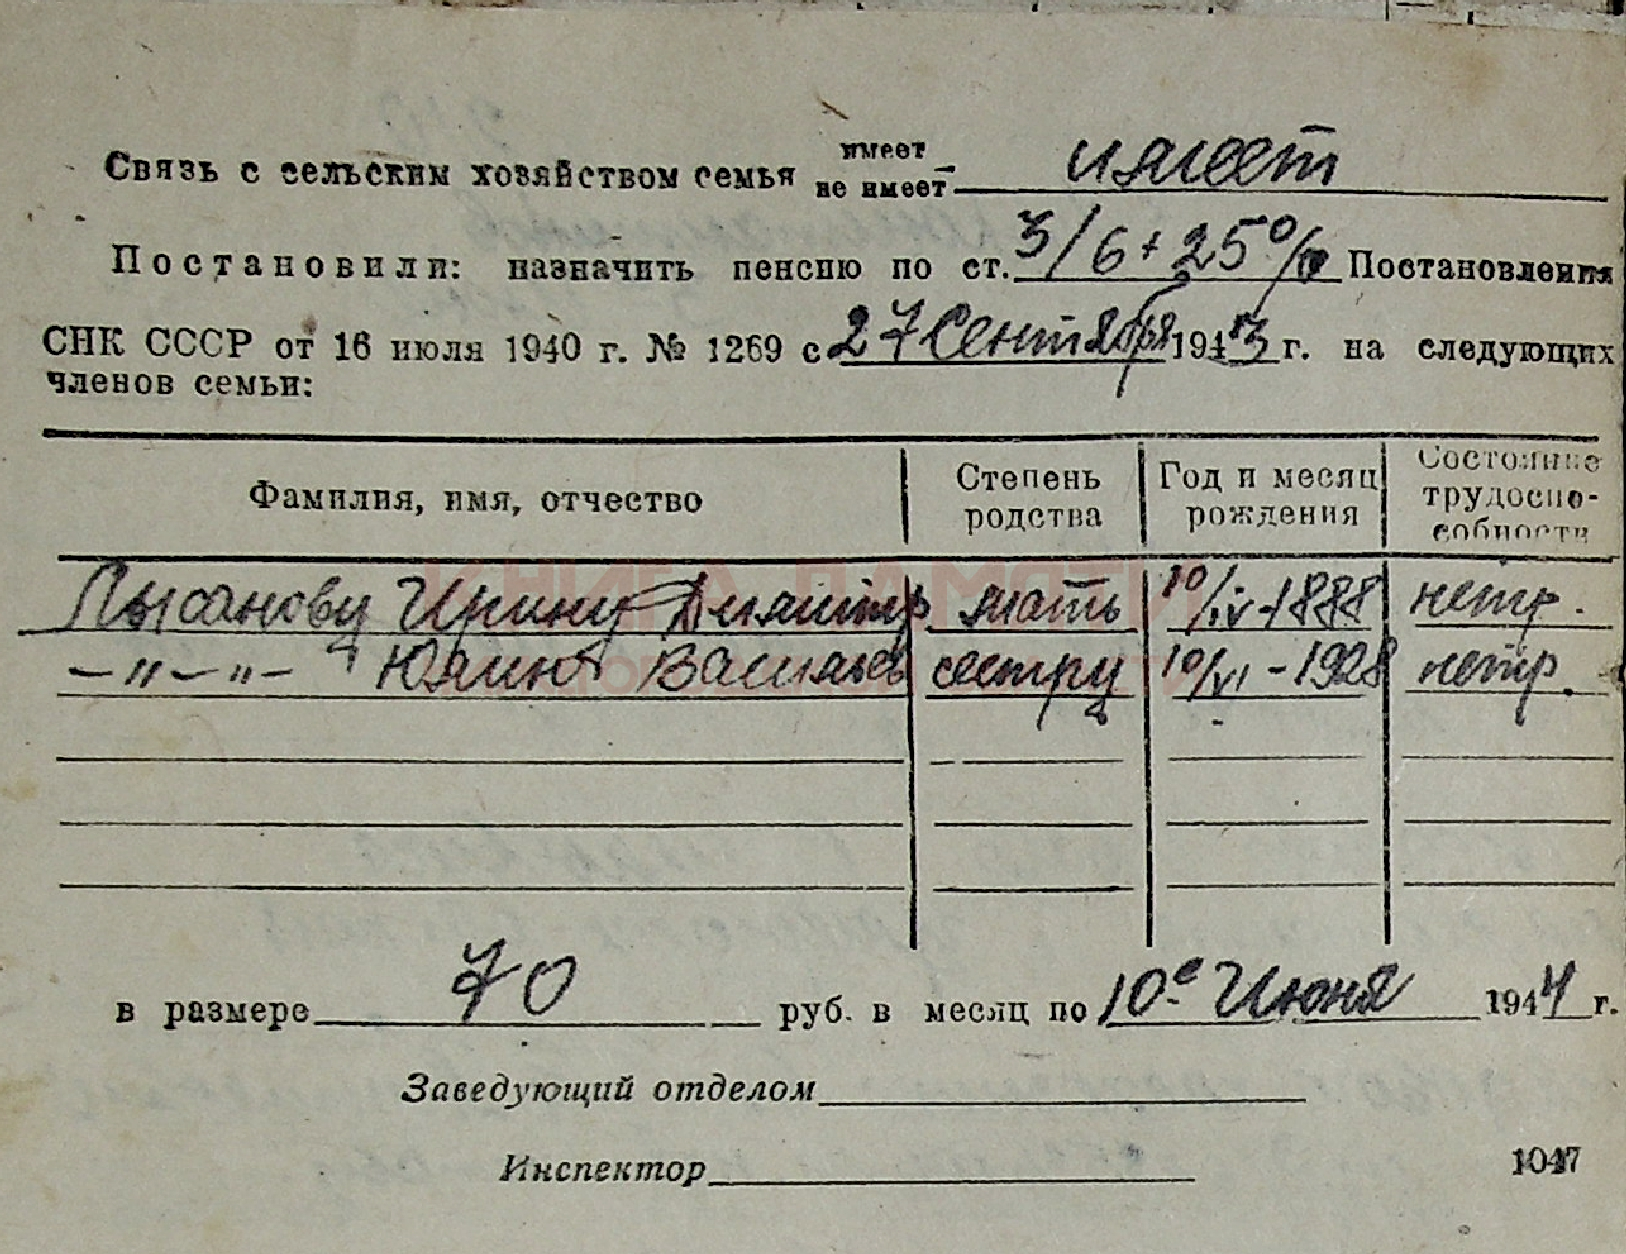 Связь с сельским хозяйством семья имеет не имеет имеет
Постановили: назначить пенсию по ст. 3/6 + 25% Постановления
СНК СССР от 16 июля 1940 г. № 1269 с 27 Сентября 1943 г. на следующих
членов семьи:
Фамилия, имя, отчество Степень родства Год и месяц рождения Состояние трудоспособности
Лысанову Ирину Димитр мать 10/IV-1888 нетр.
-"-"- Юлию Васильев сестру 10/VI-1928 нетр.
КНИГА ПАМЯТИ
в размере 70 руб. в месяц по 10е Июня 1944 г.
Заведующий отделом
Инспектор
1047